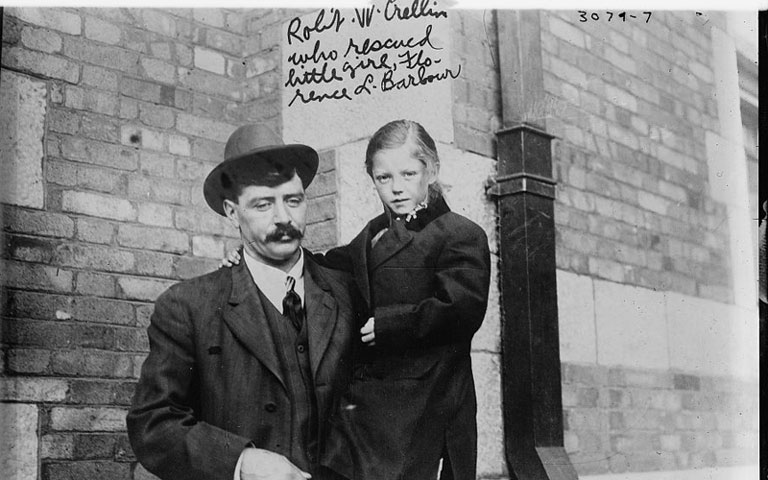 Rob't. W. Crellin
who rescued
little girl, Flo-
rence L. Barbour
3079-7